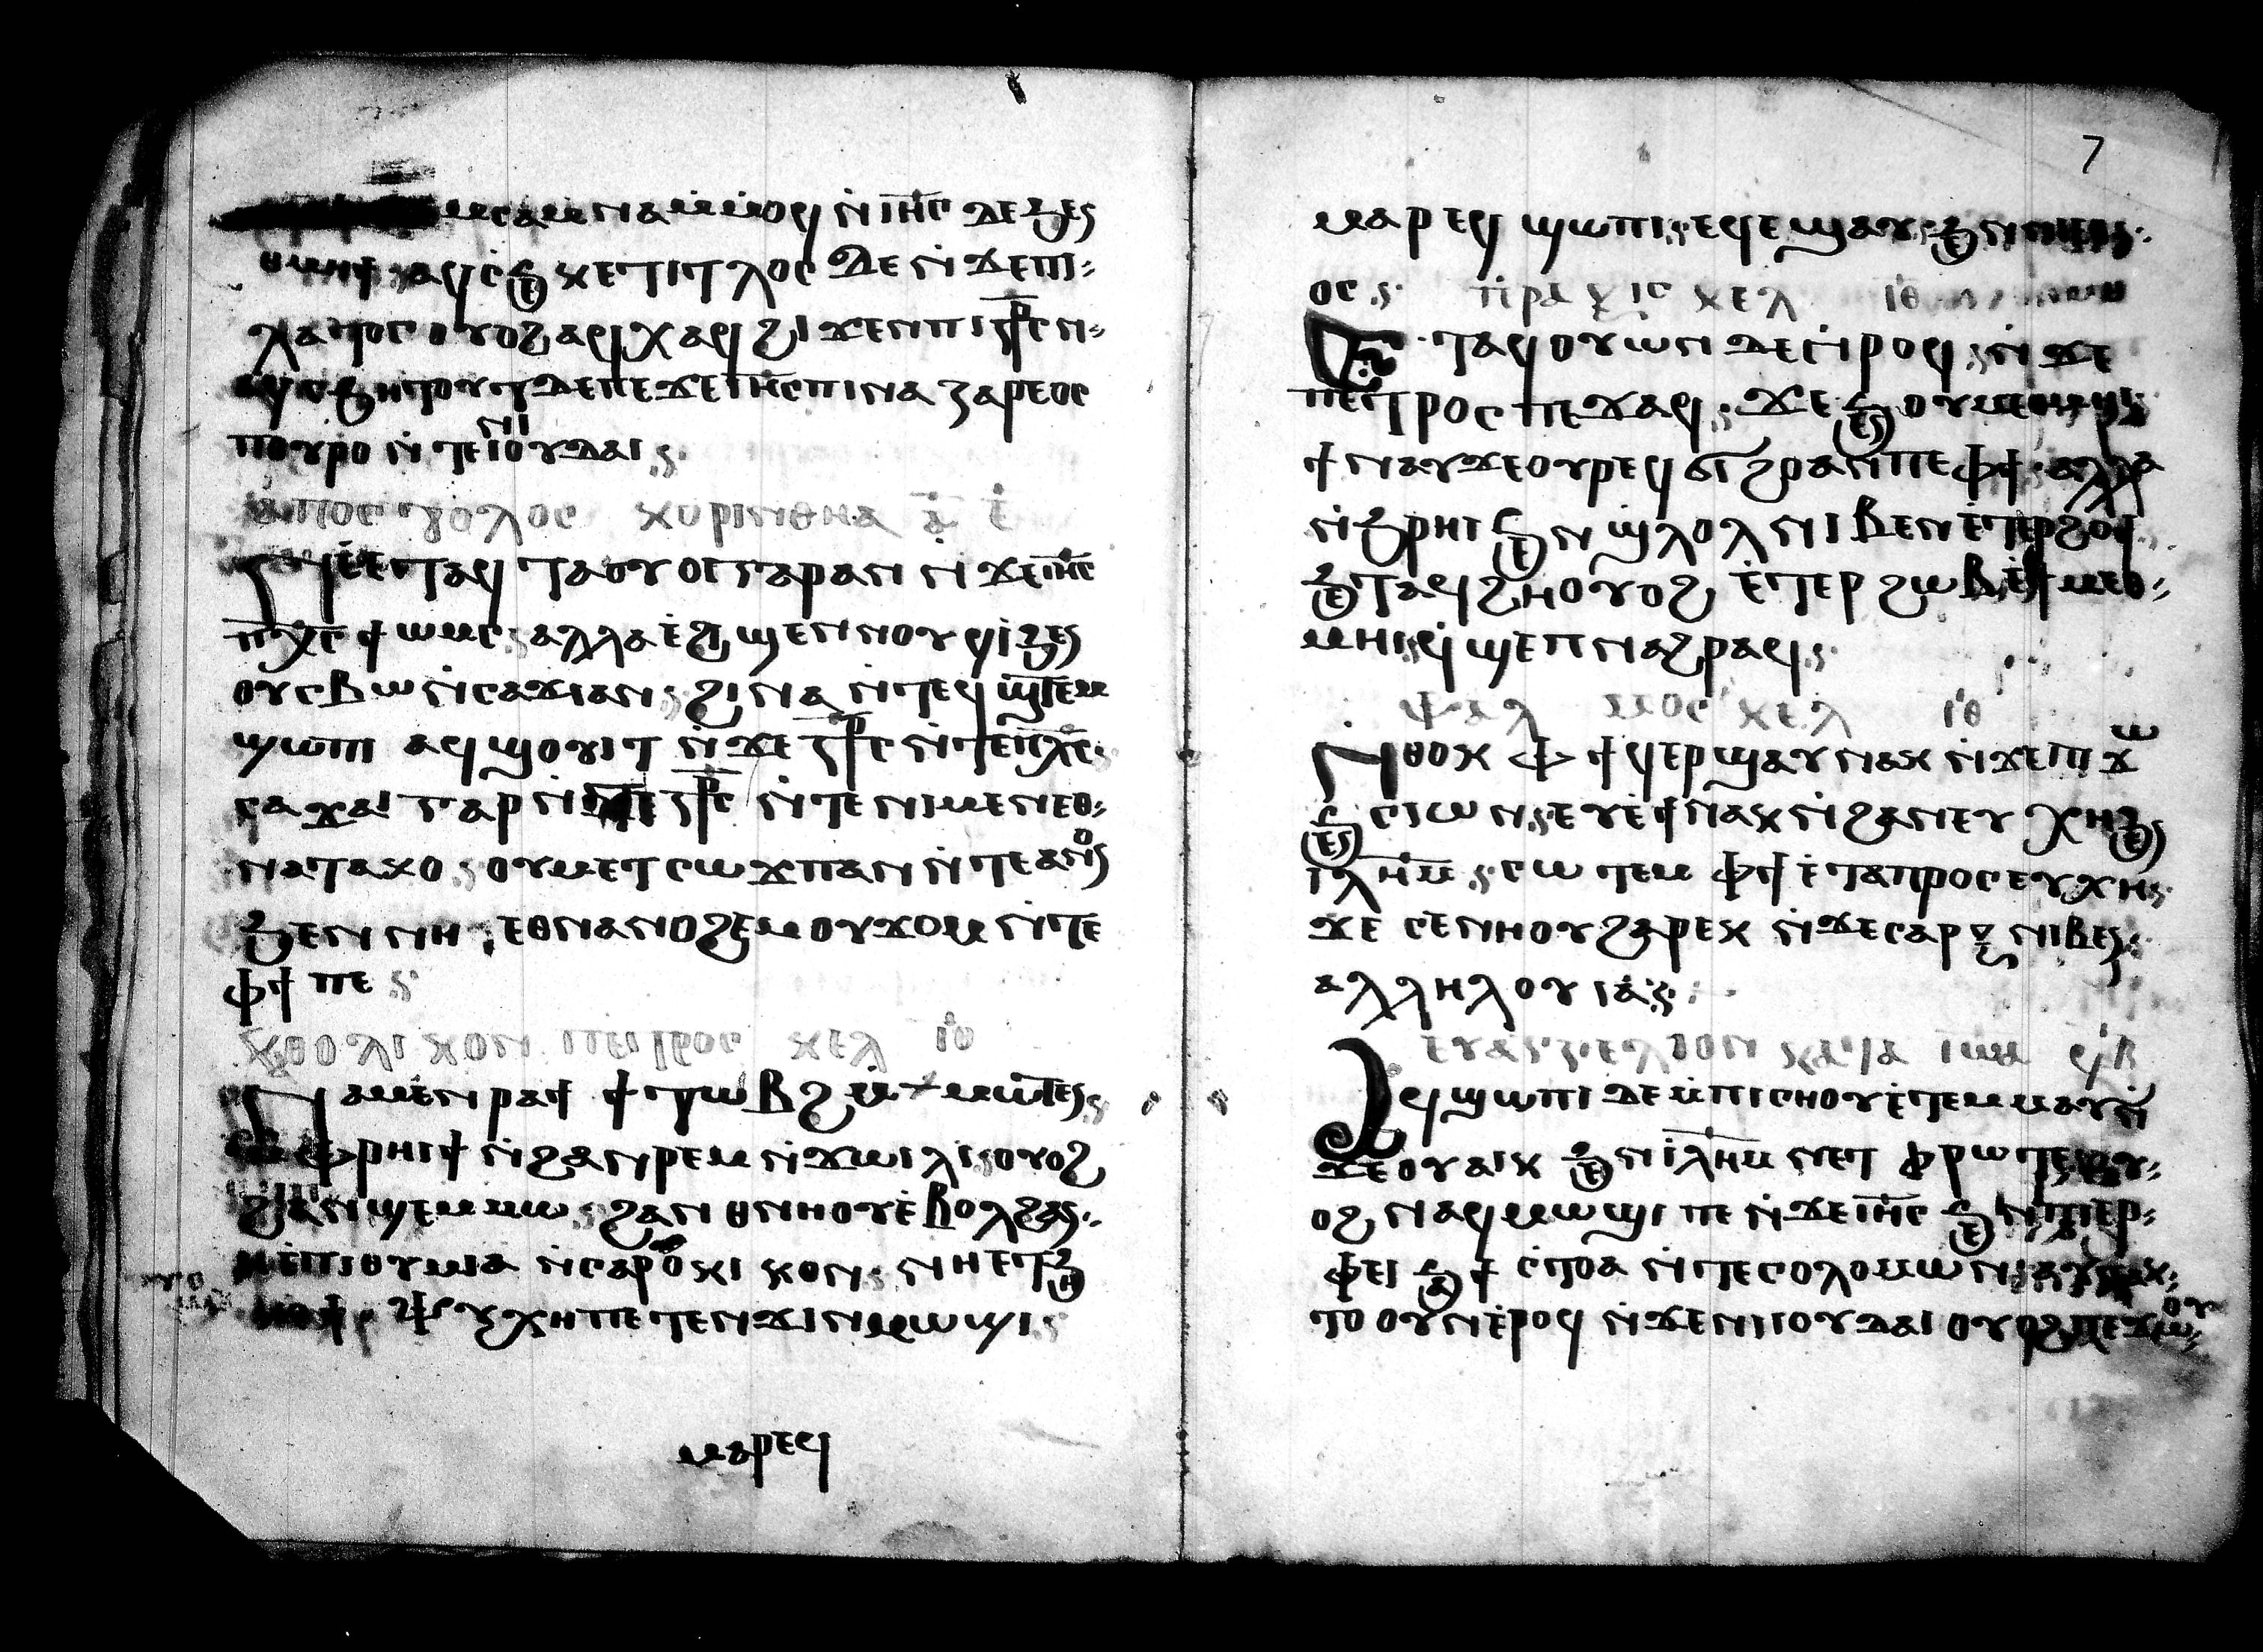 ⲙⲥⲁⲙⲛⲁⲙ̀ⲙⲟϥ ⲛ̀ⲓⲏ̅ⲥ̅ ⲇⲉϧⲉⲛ
ⲭⲉⲧⲓⲧⲗⲟⲥ ⲇⲉ ⲛ̀ϫⲉⲡⲓ
ⲗⲁⲧⲟⲥ ⲟⲩⲟϩ ⲁϥⲭⲁϥ ϩⲓϫⲉⲛ ⲡⲓⲥ̅ⲣ̅ⲥ̅ ⲛ
ⲁϥⲥϧⲏⲟⲩⲧ ⲇⲉ ⲡⲉ ϫⲉ ⲓⲏ̅ⲥ̅ ⲡⲓⲛⲁⲍⲁⲣⲉⲟⲥ
ⲡⲟⲩⲣⲟ ⲛ̀ⲧⲉ ⲛⲓⲓⲟⲩⲇⲁⲓ
ⲁⲡⲟⲥⲧⲟⲗⲟⲥ ⲕⲩⲣⲓⲛⲑⲏⲁ ⲁ̅ ⲉ̅
ⲛⲉⲧⲁϥ ⲧⲁⲟⲩⲟⲓ ⲅⲁⲣ ⲁⲛ ⲛ̀ϫⲉⲡⲓ
ⲡⲭ̅ⲥ̅ ϯⲱⲙⲥ ⲁⲗⲗⲁ ⲉϩⲓϣⲉⲛⲛⲟⲩϥⲓ ϧⲉⲛ
ⲟⲩⲥⲃⲱ ⲛ̀ⲥⲁϫⲓ ⲁⲛ ϩⲓⲛⲁ ⲛ̀ⲧⲉϥϣ̀ⲧⲉⲙ
ϣⲱⲡⲓ ⲁϥϣⲟⲩⲓⲧ ⲛ̀ϫⲉ ⲥ̅ⲣ̅ⲥ̅ ⲛ̀ⲧⲉⲡⲭ̅ⲥ̅
ⲥⲁϫⲓ ⲅⲁⲣ ⲛ̀ⲧⲉ ⲥ̅ⲣ̅ⲥ̅ ⲛ̀ⲧⲉ ⲛⲓⲙⲉⲛ ⲉⲑ
ⲛⲁⲧⲁⲕⲟ ⲟⲩⲙⲉⲧⲥⲱϫⲡ ⲁⲛ ⲛ̀ⲧⲉ ⲁⲛⲟⲛ
ϧⲉⲛ ⲛⲏ ⲉⲑⲛⲁⲛⲟϩⲉⲙ ⲟⲩϫⲟⲙ ⲛ̀ⲧⲉ
ⲫϯ ⲡⲉ
ⲕⲑⲟⲗⲓⲕⲟⲛ ⲡⲉⲧⲣⲟⲥ ⲕⲉⲗ ⲓ̅ⲑ̅
ⲛⲁⲙⲉⲛⲣⲁϯ ϯⲧⲱⲃϩ ⲙ̀ⲙⲱⲧⲉⲛ
ⲙ̀ⲫⲣⲏϯ ⲛ̀ϩⲁⲛⲣⲉⲙⲛ̀ϫⲱⲓⲗⲓ ⲟⲩⲟϩ
ϩⲁⲛϣⲉⲙⲙⲱ ϩⲁⲛ ⲑⲏⲛⲟⲩ ⲉ̀ⲃⲟⲗ ϩⲁ
ⲛⲉⲡⲓⲑⲩⲙⲓⲁ ⲛ̀ⲥⲁⲣⲟⲕⲓⲕⲟⲛ ⲛⲏ ⲉⲧϧⲏ
ⲯⲩⲭⲏ ⲡⲉⲧⲉⲛϫⲓⲛⲙⲱϣⲓ
ⲙⲁⲣⲉϥ
7
ⲙⲁⲣⲉϥϣⲱⲡⲓ ⲉϥⲉϣⲁⲩ ϧⲉⲛ
ⲟⲥ ⲡⲣⲁⲝⲓⲥ ⲕⲉⲗ ⲓ̅ⲑ̅
ⲉⲧⲁϥⲟⲩⲱⲛ ⲇⲉ ⲛ̀ⲣⲟϥ ⲛ̀ϫⲉ
ⲡⲉⲧⲣⲟⲥ ⲡⲉϫⲁϥ ϫⲉ ϧⲉⲛ ⲟⲩⲙⲉⲑⲙⲏⲓ
ϯⲛⲁⲩ ϫⲉ ⲟⲩⲣⲉϥϭⲓϩⲟ ⲁⲛ ⲡⲉ ⲫϯ ⲁⲗⲗⲁ
ⲛ̀ϧⲣⲏⲓ ϧⲉⲛ ϣⲗⲟⲗ ⲛⲓⲃⲉⲛ ⲉ̀ⲧⲉⲣϩⲟϯ
ϧⲉⲧⲁϥϩⲏ ⲟⲩⲟϩ ⲉ̀ⲧⲉⲣϩⲱⲃ ⲉ̀ϯⲙⲉⲑ
ⲙⲏⲓ ϥ̀ϣⲉⲡ ⲛⲁϩⲣⲁϥ
ⲯⲁⲗⲙⲟⲥ ⲕⲉⲗ ⲓ̅ⲑ̅
ⲛⲑⲟⲕ ⲫϯ ϥ̀ⲉⲣϣⲁⲩ ⲛⲁⲕ ⲛ̀ϫⲉⲡⲓϫⲱ
ϧⲉⲛ ⲥⲓⲱⲛ ⲉⲩⲉ̀ϯ ⲛⲁⲕ ⲛ̀ϩⲁⲛⲉⲩⲭⲏ ϧⲉⲛ
ⲓⲗⲏ̅ⲙ̅ ⲥⲱⲧⲉⲙ ⲫϯ ⲉ̀ⲧⲁⲡⲣⲟⲥⲉⲩⲭⲏ
ϫⲉ ⲥⲉⲛⲏⲟⲩ ϩⲁⲣⲉⲕ ⲛ̀ϫⲉ ⲥⲁⲣⲝ ⲛⲓⲃⲉⲛ
ⲁⲗⲗⲏⲗⲟⲩⲓⲁ
ⲉⲩⲁⲅⲅⲉⲗⲓⲟⲛ ⲕⲁⲧⲁ ⲓⲱⲁ
ⲁϥϣⲱⲡⲓ ⲇⲉ ⲙ̀ⲡⲓⲥⲏⲟⲩ ⲉ̀ⲧⲉⲙⲙⲁⲩ ⲛ̀
ϫⲉ ⲟⲩⲁⲓⲕ ϧⲉⲛ ⲓⲗⲏ̅ⲙ̅ ⲛⲉⲧ ⲫⲣⲱ ⲧⲉ
ⲟϩ ⲛⲁϥⲙⲱϣⲓ ⲡⲉ ⲛ̀ϫⲉ ⲓⲏ̅ⲥ̅ ϧⲉⲛ ⲡⲓⲉⲣ
ⲫⲉⲓ ϧⲁ ϯⲥ̀ⲧⲟⲁ ⲛ̀ⲧⲉ ⲥⲟⲗⲟⲙⲱⲛ
ⲧⲟ ⲟⲩⲛ ⲉ̀ⲣⲟϥ ⲛ̀ϫⲉ ⲛⲓⲓⲟⲩⲇⲁⲓ ⲟⲩⲟϩ ⲡⲉϫⲱⲟⲩ